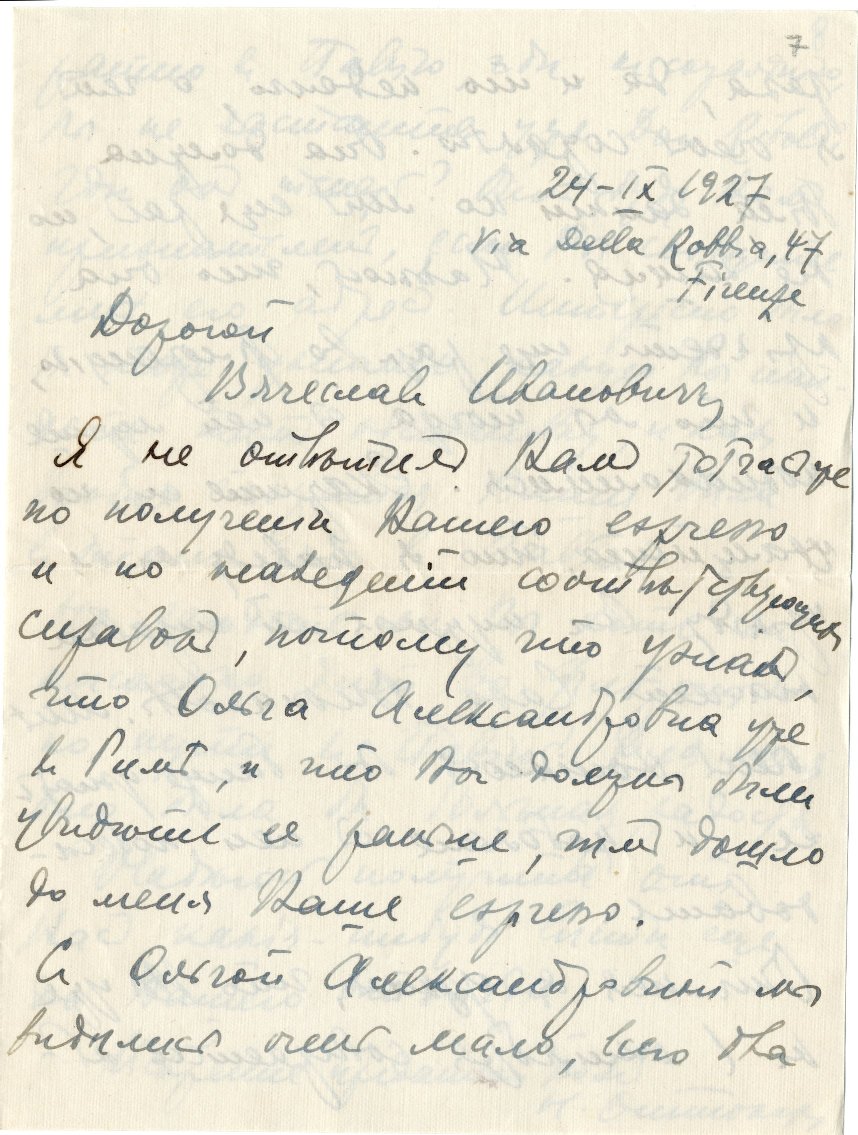 7
24-IX 1927
Via Della Robbia, 47
Firenze
Дорогой
Вячеслав Иванович,
Я не отвѣтилъ Вамъ тотчасъ же
по полученіи Вашего espresso
и по наведеніи соотвѣтствующихъ
справокъ, потому что узналъ,
что Ольга Александровна уже
въ Римѣ, и что Вы должны были
увидѣть ее раньше, чѣмъ дошло
до меня Ваше espresso.
Съ Ольгой Александровной мы
видѣлись очень мало, всего два